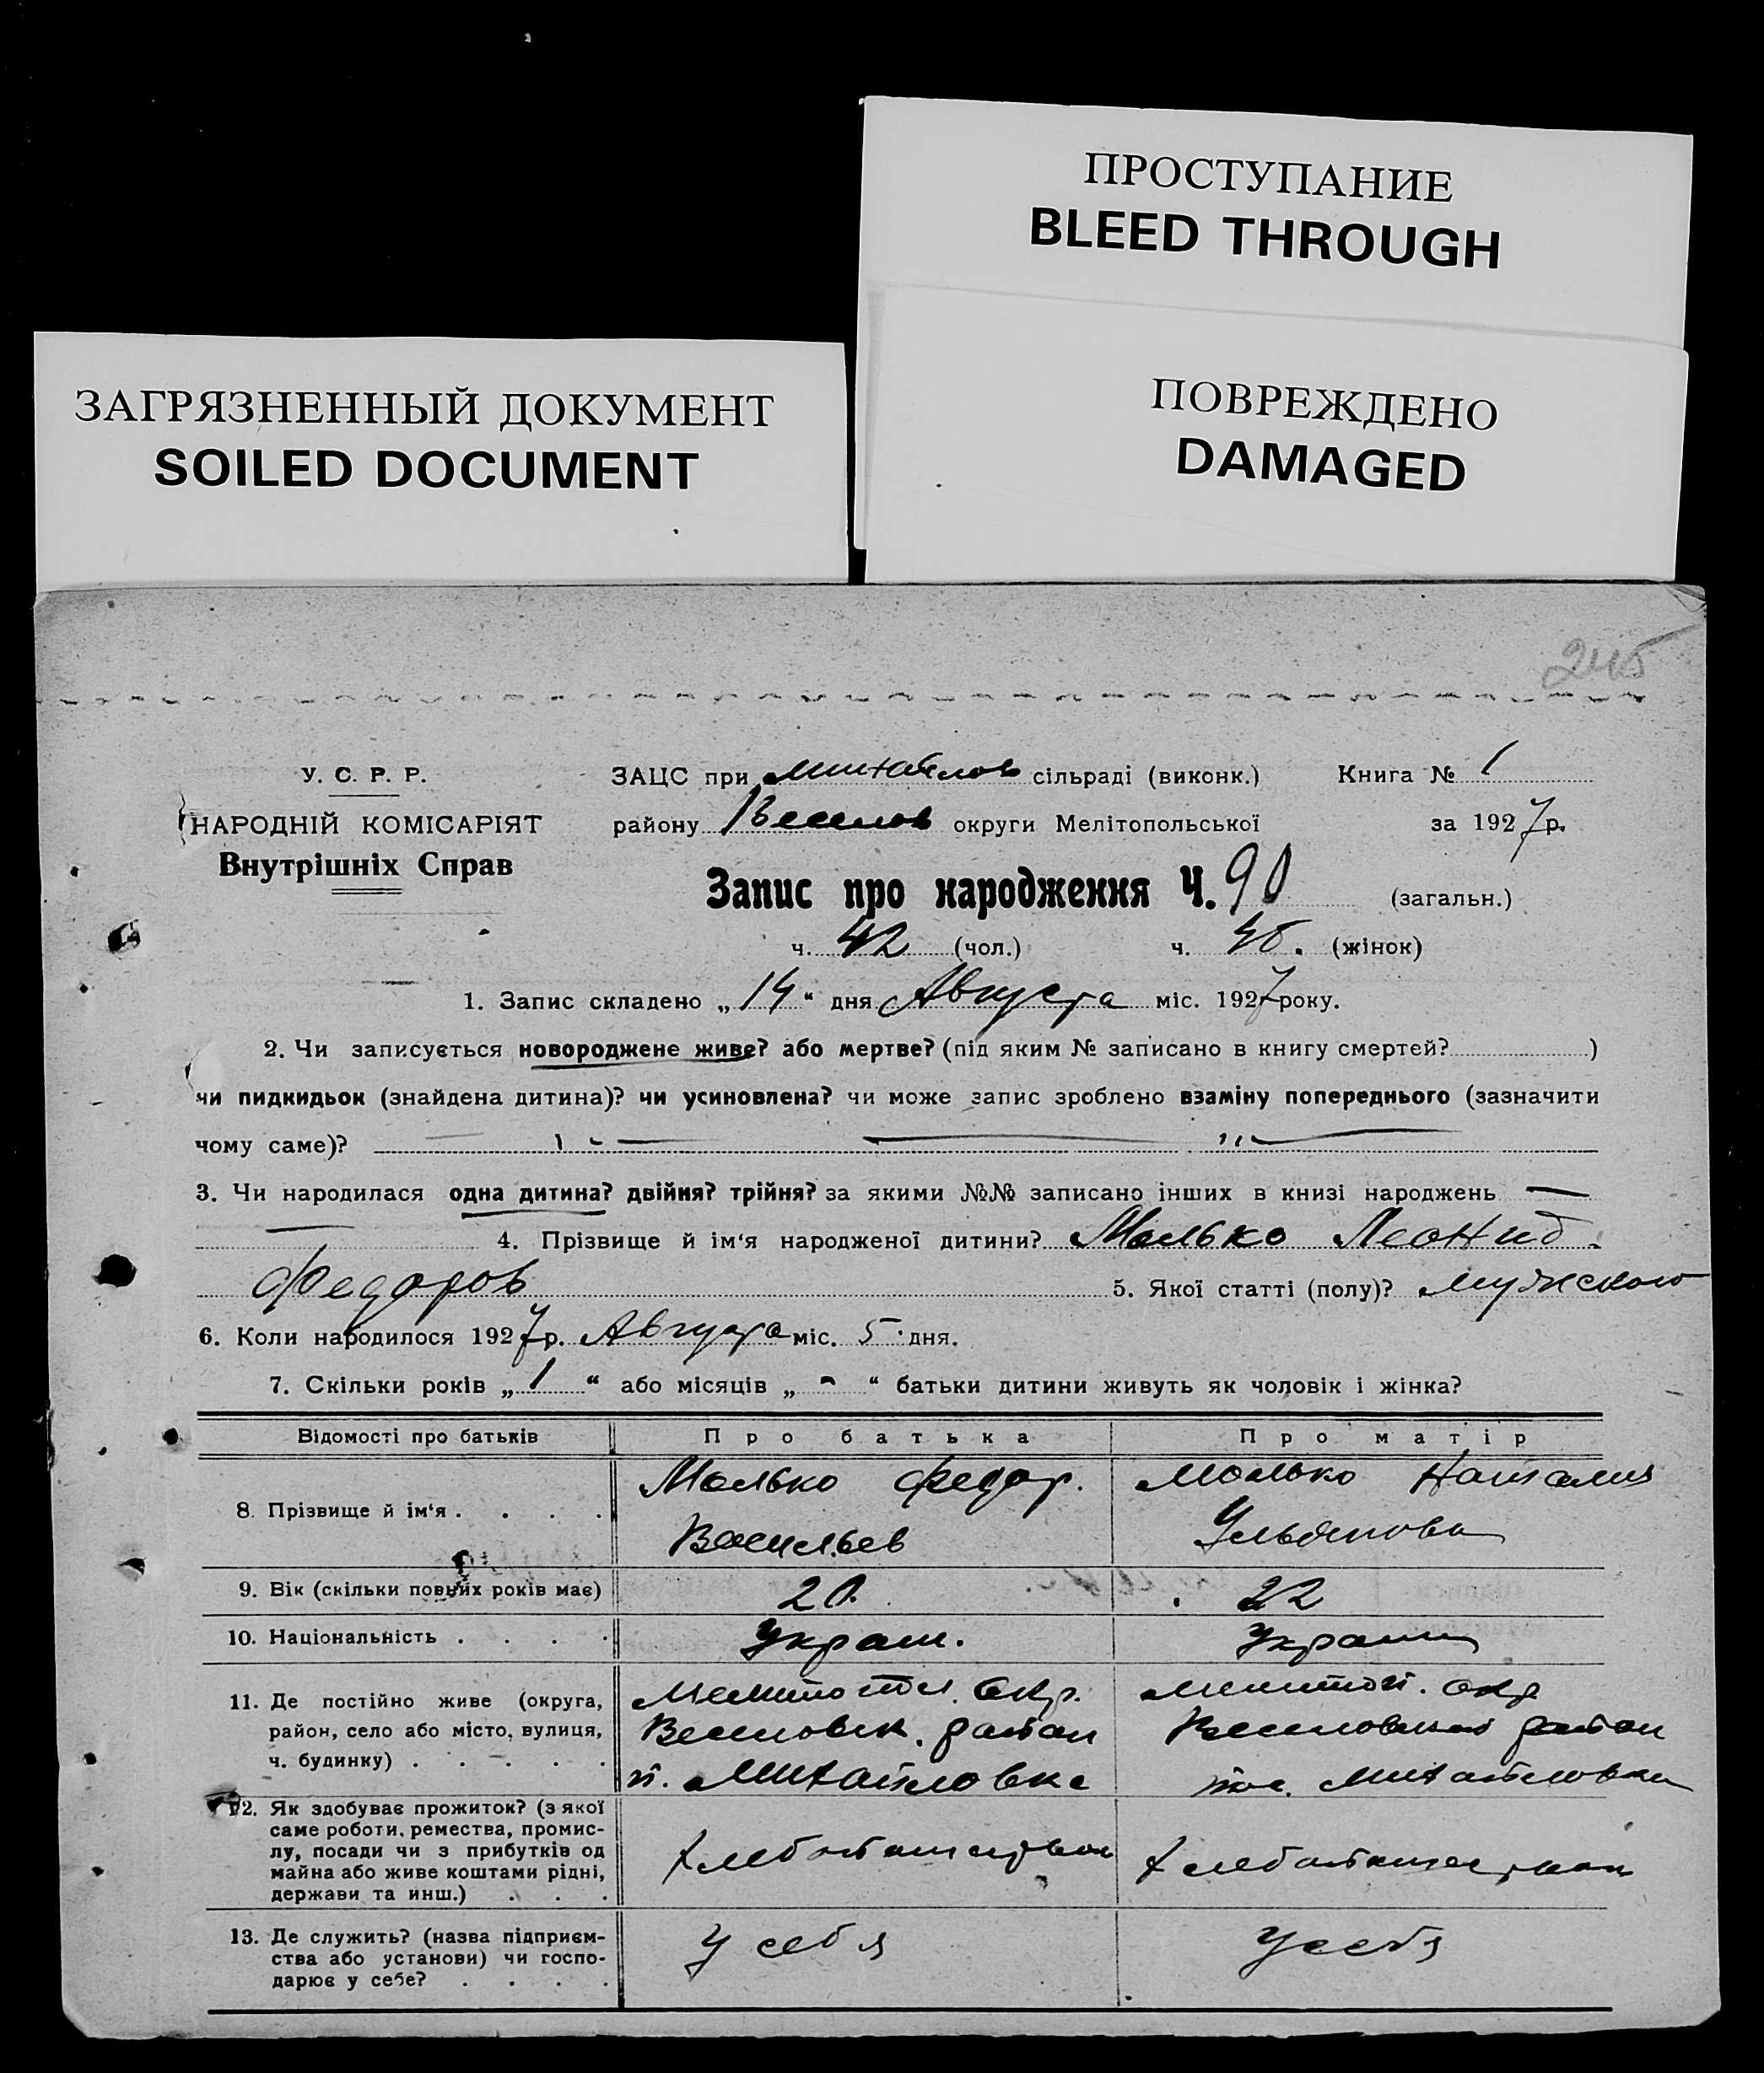 ПРОСТУПАНИЕ
BLEED THROUGH
ПОВРЕЖДЕНО
DAMAGED
ЗАГРЯЗНЕННЫЙ ДОКУМЕНТ
SOILED DOCUMENT
245
У. С. Р. Р.
НАРОДНІЙ КОМІСАРІЯТ
Внутрішніх Справ
ЗАЦС при Михайлов сільраді (виконк.) Книга № 1
району Веселов округи Мелітопольської за 1927 р.
Запис про народження Ч. 90 (загальн.)
ч. 42 (чол.) ч. 48. (жінок)
1. Запис складено „14“ дня Августа міс. 1927 року.
2. Чи записується новороджене живе? або мертве? (під яким № записано в книгу смертей? )
чи пидкидьок (знайдена дитина)? чи усиновлена? чи може запис зроблено взаміну попереднього (зазначити
чому саме)?
3. Чи народилася одна дитина? двійня? трійня? за якими №№ записано інших в книзі народжень —
4. Прізвище й ім'я народженої дитини? Малько Леонид
Федоров 5. Якої статті (полу)? мужского
6. Коли народилося 1927 р. Августа міс. 5 дня.
7. Скільки років „1“ або місяців „-“ батьки дитини живуть як чоловік і жінка?
Відомості про батьків Про батька Про матір
8. Прізвище й ім'я . . . . Малько Федор. Малько Наталия
Васильев Ульянова
9. Вік (скільки повних років має) 20. 22
10. Національність . . . . Украин. Украин
11. Де постійно живе (округа, Мелитопол. Окр. Мелитоп. окр
район, село або місто, вулиця, Веселовск. район Веселовский район
ч. будинку) . . . . . п. Михайловка пос. Михайловка
12. Як здобуває прожиток? (з якої
саме роботи, ремества, промис-
лу, посади чи з прибутків од
майна або живе коштами рідні, хлебопашество хлебопашество
держави та инш.) . . .
13. Де служить? (назва підприєм-
ства або установи) чи госпо- у себя у себя
дарює у себе? . . . .